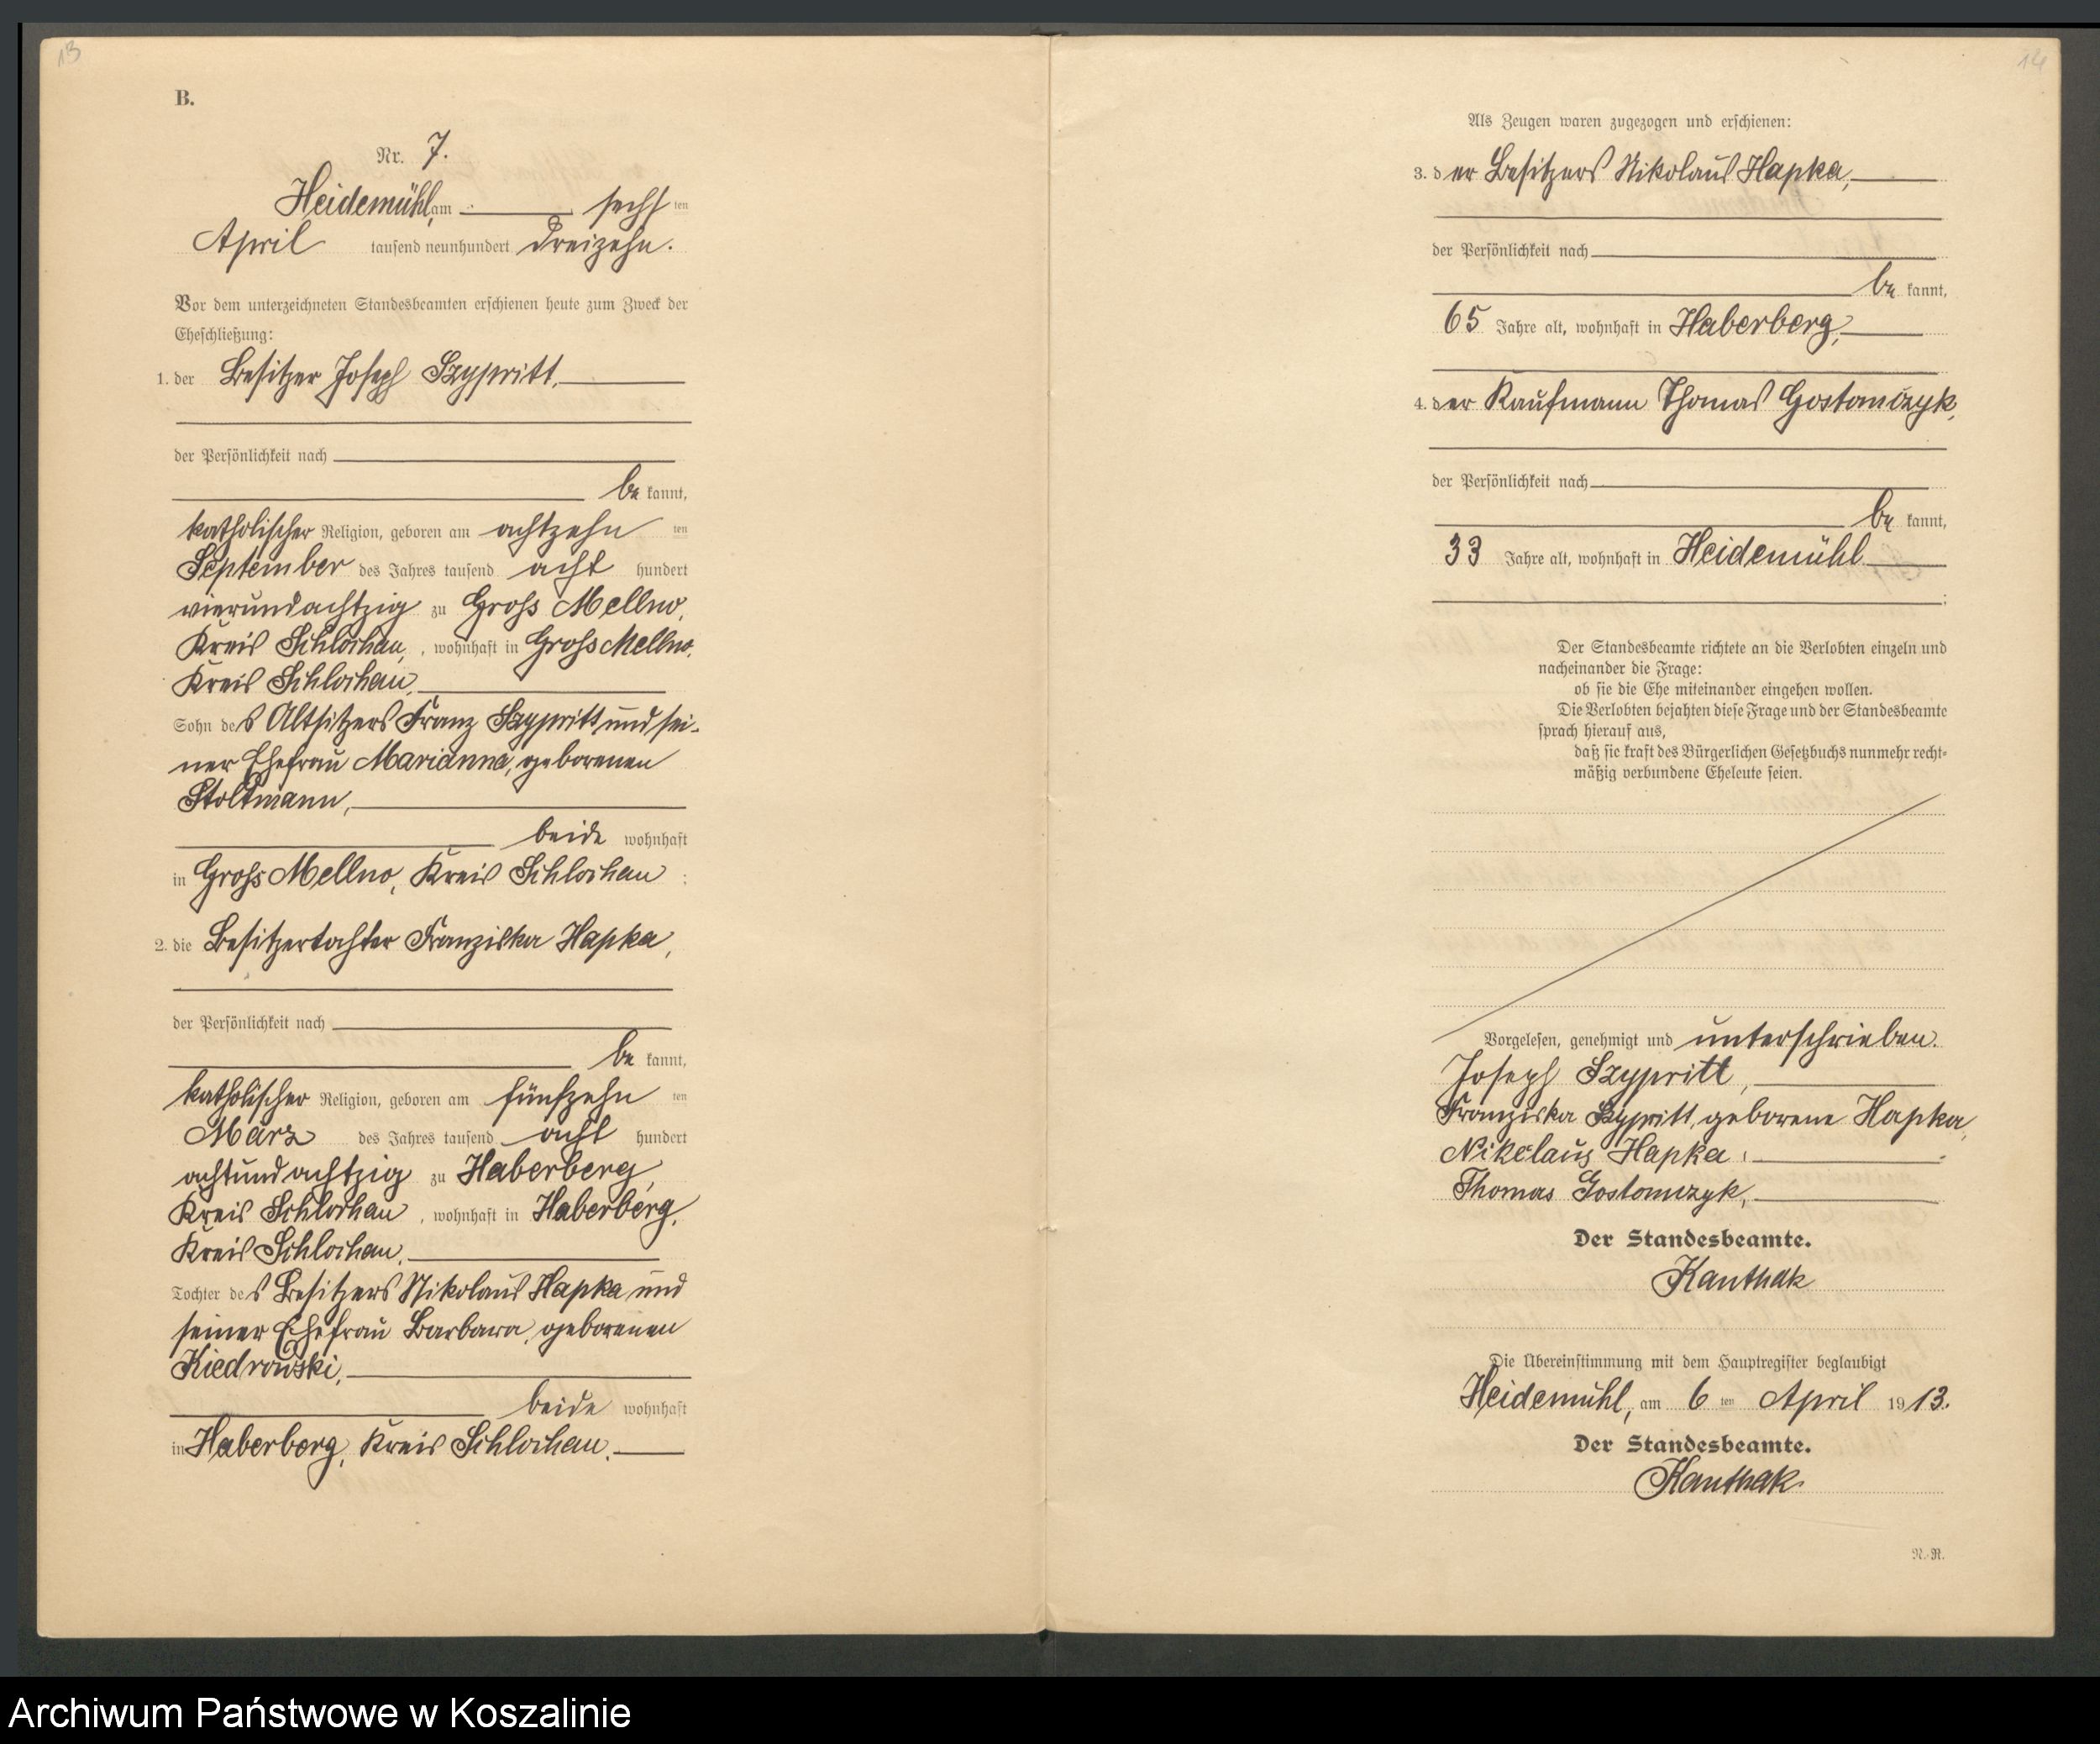 13
B.
Nr. 7.
Heidemühl, am sechsten
April tausend neunhundert dreizehn.
Vor dem unterzeichneten Standesbeamten erschienen heute zum Zweck der
Eheschließung:
1. der Besitzer Joseph Szypritt,
der Persönlichkeit nach
be kannt,
katholischer Religion, geboren am achtzehn ten
September des Jahres tausend acht hundert
vierundachtzig zu Gross Mellno,
Kreis Schlochau, , wohnhaft in Gross Mellno,
Kreis Schlochau,
Sohn des Altsitzers Franz Szypritt und sei-
ner Ehefrau Marianna, geborenen
Stoltmann,
beide wohnhaft
in Gross Mellno, Kreis Schlochau ;
2. die Besitzertochter Franziska Hapka,
der Persönlichkeit nach
be kannt,
katholischer Religion, geboren am fünfzehn ten
März des Jahres tausend acht hundert
achtundachtzig zu Haberberg,
Kreis Schlochau , wohnhaft in Haberberg,
Kreis Schlochau,
Tochter des Besitzers Nikolaus Hapka und
seiner Ehefrau Barbara, geborenen
Kiedrowski,
beide wohnhaft
in Haberberg, Kreis Schlochau.
14
Als Zeugen waren zugezogen und erschienen:
3. der Besitzers Nikolaus Hapka,
der Persönlichkeit nach
be kannt,
65 Jahre alt, wohnhaft in Haberberg,
4. der Kaufmann Thomas Gostomczyk,
der Persönlichkeit nach
be kannt,
33 Jahre alt, wohnhaft in Heidemühl
;
Der Standesbeamte richtete an die Verlobten einzeln und
nacheinander die Frage:
ob sie die Ehe miteinander eingehen wollen.
Die Verlobten bejahten diese Frage und der Standesbeamte
sprach hierauf aus,
daß sie kraft des Bürgerlichen Gesetzbuchs nunmehr recht-
mäßig verbundene Eheleute seien.
Vorgelesen, genehmigt und unterschrieben.
Joseph Szypritt,
Franziska Szypritt, geborene Hapka,
Nikolaus Hapka,
Thomas Gostomczyk,
Der Standesbeamte.
Kanthak
Die Übereinstimmung mit dem Hauptregister beglaubigt
Heidemühl, am 6 ten April 1913.
Der Standesbeamte.
Kanthak
N.-R.
Archiwum Państwowe w Koszalinie